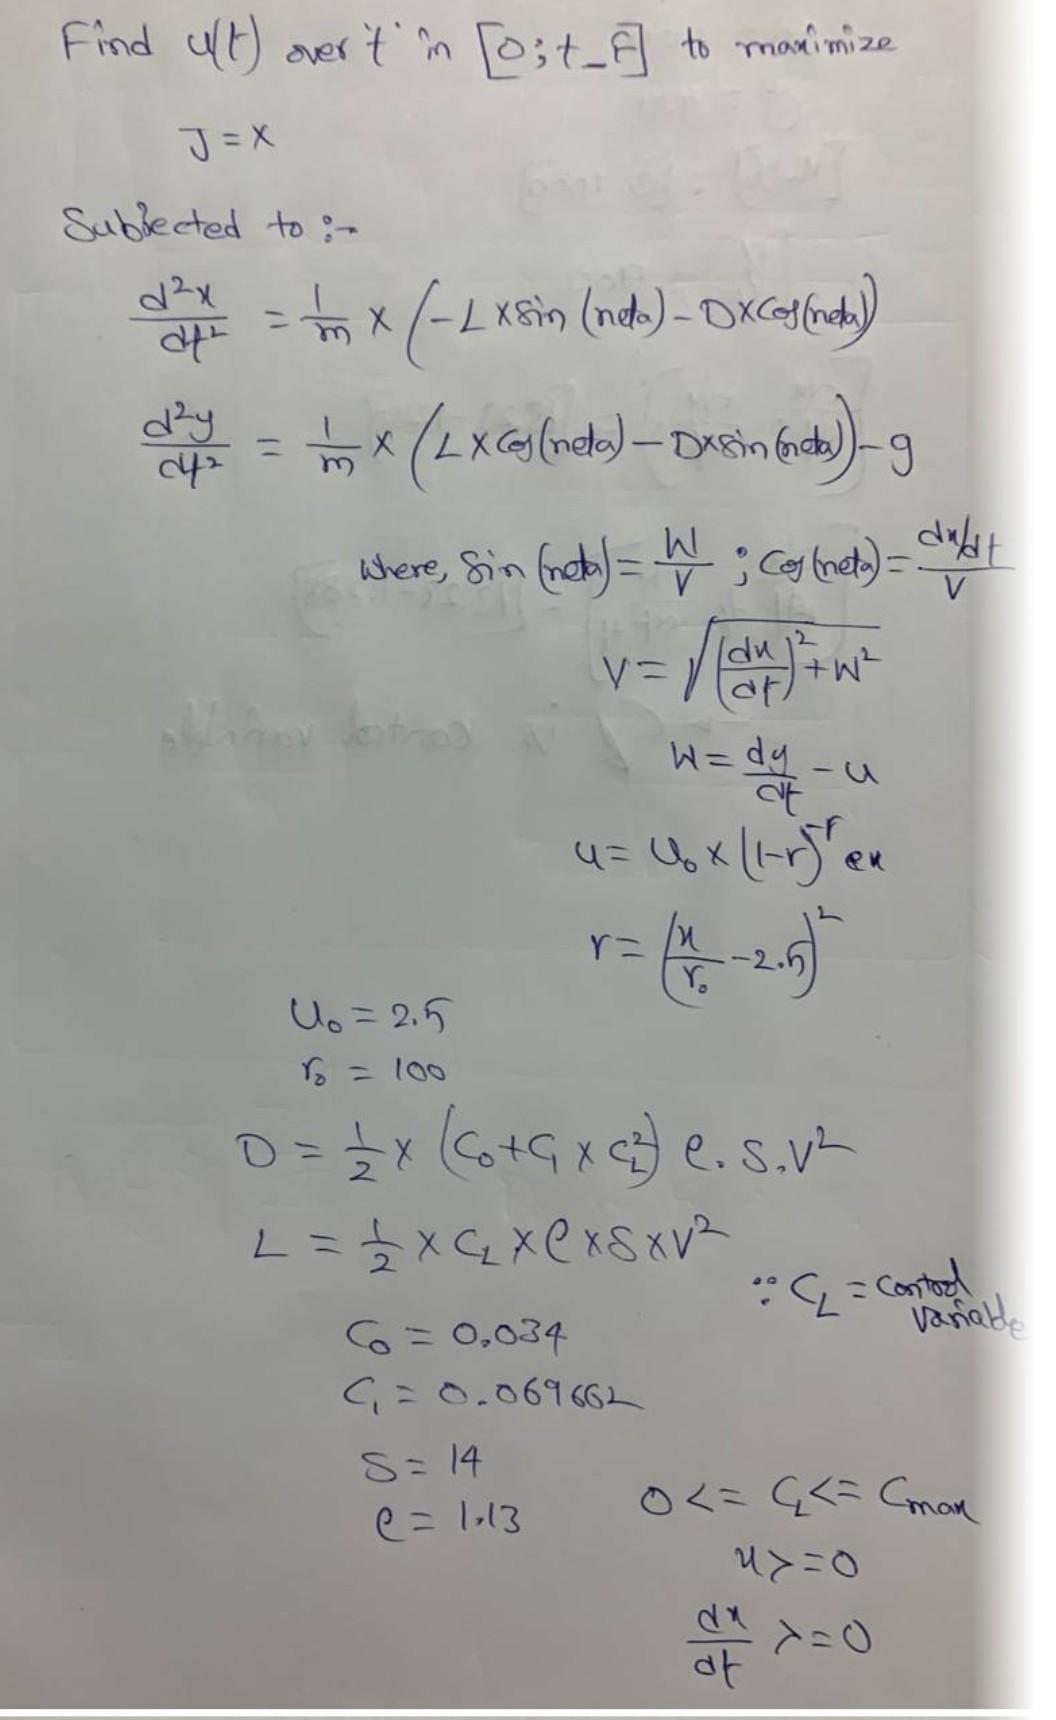 Find u(t) over t in [0; t_F] to maximize
J = x
Subjected to :-
d²x/dt² = 1/m × (-L × sin (neta) - D × cos(neta))
d²y/dt² = 1/m × (L × cos(neta) - D × sin (neta)) - g
where, sin (neta) = W/V ; cos (neta) = dx/dt / V
V = √((dx/dt)² + W²)
W = dy/dt - u
u = u₀ × (1-r)^-r ex
r = (x/r₀ - 2.5)²
u₀ = 2.5
r₀ = 100
D = 1/2 × (C₀ + C₁ × C_L²) ρ. S. V²
L = 1/2 × C_L × ρ × S × V²
∵ C_L = control variable
C₀ = 0.034
C₁ = 0.069662
S = 14
ρ = 1.13
0 <= C_L <= Cmax
x >= 0
dx/dt >= 0